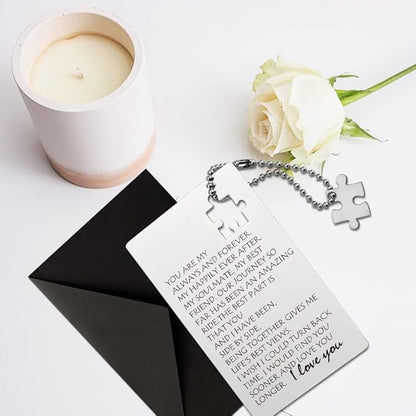 YOU ARE MY
ALWAYS AND FOREVER
MY HAPPILY EVER AFTER,
MY SOULMATE, MY BEST
FRIEND. OUR JOURNEY SO
FAR HAS BEEN AN AMAZING
RIDE THE BEST PART IS
THAT YOU
AND I HAVE BEEN,
SIDE BY SIDE.
BEING TOGETHER GIVES ME
LIFE'S BEST VIEWS.
I WISH I COULD TURN BACK
TIME. I WOULD FIND YOU
SOONER AND LOVE YOU
LONGER. I love you